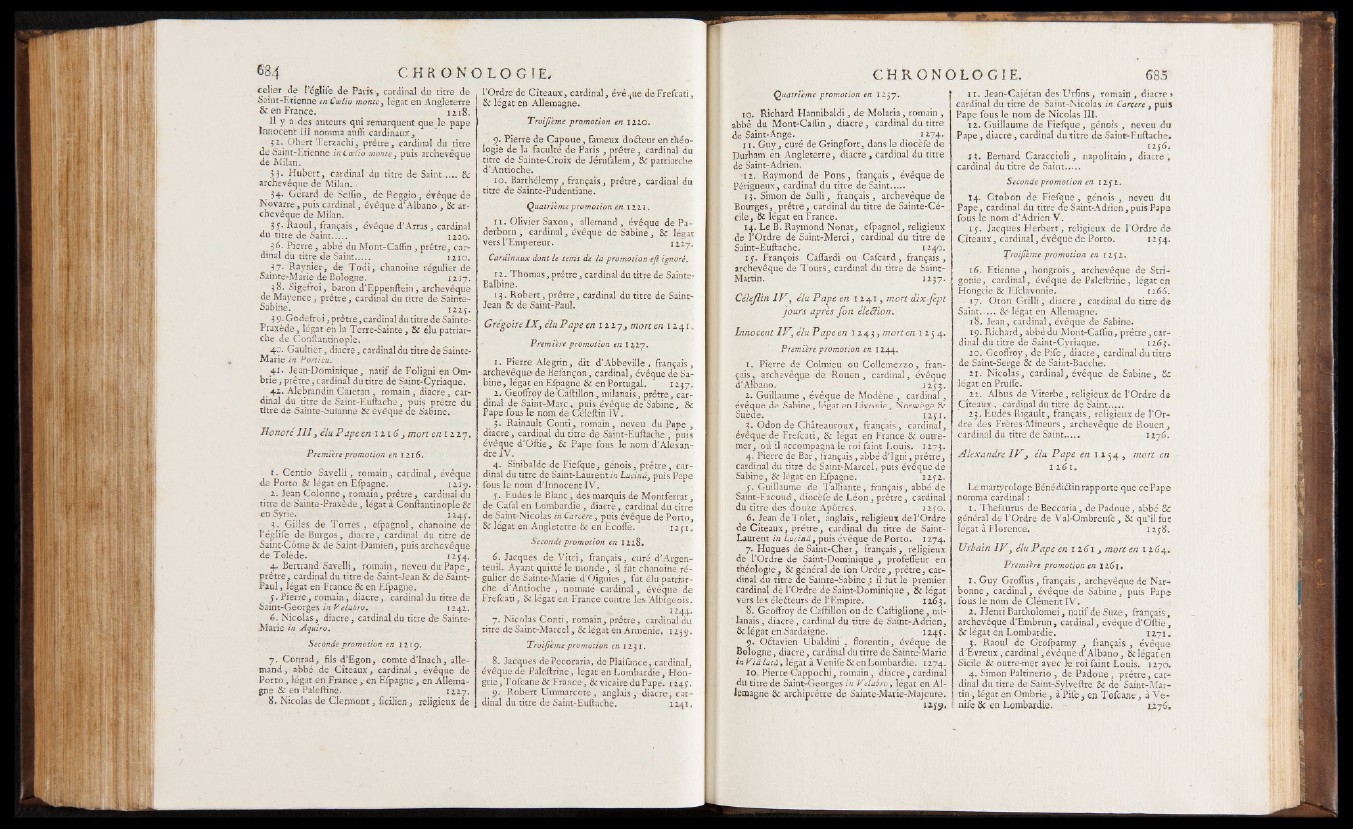 684 CHRONOLOGIE.
celier de l'église de Paris, cardinal du titre de
Saint-Etienne in Cœlio monte, légat en Angleterre
& en France. 1218.
Il y a des auteurs qui remarquent que le pape
Innocent III nomma aussi cardinaux,
32. Obert Terzachi, prêtre, cardinal du titre
de Saint-Etienne in Cœlio monte, puis archevêque
de Milan.
33. Hubert, cardinal du titre de Saint..... &
archevêque de Milan.
34. Gérard de Sessio, de Reggio, évêque de
Novarre, puis cardinal, évêque d'Albano, & ar-
chevêque de Milan.
35. Raoul, français, évêque d'Arras, cardinal
du titre de Saint..... 1220.
36. Pierre, abbé du Mont-Cassin, prêtre, car-
dinal du titre de Saint..... 1210.
37. Raynier, de Todi, chanoine régulier de
Sainte-Marie de Bologne. 1217.
38. Sigefroi, baron d'Eppenstein, archevêque
de Mayence, prêtre, cardinal du titre de Sainte-
Sabine. 1225.
39. Godefroi, prêtre, cardinal du titre de Sainte-
Praxède, légat en la Terre-Sainte, & élu patriar-
che de Constantinople.
40. Gaultier, diacre, cardinal du titre de Sainte-
Marie in Porticu.
41. Jean-Dominique, natif de Foligni en Om-
brie, prêtre, cardinal du titre de Saint-Cyriaque.
42. Alebrandin Caietan, romain, diacre, car-
dinal du titre de Saint-Eustache, puis prêtre du
titre de Sainte-Susanne & evêque de Sabine.
Honoré III, élu Pape en 1216, mort en 1227.
Première promotion en 1216.
1. Centio Savelli, romain, cardinal, évêque
de Porto & légat en Espagne. 1219.
2. Jean Colonne, romain, prêtre, cardinal du
titre de Sainte-Praxède, légat à Constantinople &
en Syrie. 1245.
3. Gilles de Torres, espagnol, chanoine de
l'église de Burgos, diacre, cardinal du titre de
Saint-Côme & de Saint-Damien, puis archevêque
de Tolede. 1254.
4. Bertrand Savelli, romain, neveu du Pape,
prêtre, cardinal du titre de Saint-Jean & de Saint-
Paul, légat en France & en Espagne.
5. Pierre, romain, diacre, cardinal du titre de
Saint-Georges in Velabro. 1242.
6. Nicolas, diacre, cardinal du titre de Sainte-
Marie in Aquiro.
Seconde promotion en 1219.
7. Conrad, fils d'Egon, comte d'Inach, alle-
mand, abbé de Cîteaux, cardinal, évêque de
Porto, légat en France, en Espagne, en Allema-
gne & en Palestine. 1227.
8. Nicolas de Clermont, sicilien, religieux de
l'Ordre de Cîteaux, cardinal, évêque de Frescati,
& légat en Allemagne.
Troisième promotion en 1220.
9. Pierre de Capoue, fameux docteur en théo-
logie de la faculté de Paris, prêtre, cardinal du
titre de Sainte-Croix de Jérusalem, & patriarche
d'Antioche.
10. Barthélemy, français, prêtre, cardinal du
titre de Sainte-Pudentiane.
Quatrième promotion en 1221.
11. Olivier Saxon, allemand, évêque de Pa-
derborn, cardinal, évêque de Sabine, & légat
vers l'Empereur. 1227.
Cardinaux dont le tems de la promotion est ignoré.
12. Thomas, prêtre, cardinal du titre de Sainte-
Balbine.
13. Robert, prêtre, cardinal du titre de Saint-
Jean & de Saint-Paul.
Grégoire IX, élu Pape en 1227, mort en 1241.
Première promotion en 1227.
1. Pierre Alegrin, dit d'Abbeville, français,
archevêque de Besançon, cardinal, évêque de Sa-
bine, légat en Espagne & en Portugal. 1237.
2. Geoffroy de Castillon, milanais, prêtre, car-
dinal de Saint-Marc, puis évêque de Sabine, &
Pape sous le nom de Célestin IV.
3. Rainault Conti, romain, neveu du Pape,
diacre, cardinal du titre de Saint-Eustache, puis
évêque d'Ostie, & Pape sous le nom d'Alexan-
dre IV.
4. Sinibalde de Fiesque, génois, prêtre, car-
dinal du titre de Saint-Laurent in Lucinâ, puis Pape
sous le nom d'Innocent IV.
5. Eudes le Blanc, des marquis de Montferrat,
de Casal en Lombardie, diacre, cardinal du titre
de Saint-Nicolas in Carcere, puis évêque de Porto,
& légat en Angleterre & en Ecosse. 1251.
Seconde promotion en 1228.
6. Jacques de Vitri, français, curé d'Argen-
teuil. Ayant quitté le monde, il fut chanoine ré-
gulier de Sainte-Marie d'Oignies, fut élu patriar-
che d'Antioche, nommé cardinal, évêque de
Frescati, & légat en France contre les Albigeois.
1244.
7. Nicolas Conti, romain, prêtre, cardinal du
titre de Saint-Marcel, & légat en Arménie. 1239.
Troisième promotion en 1231.
8. Jacques de Pecoraria, de Plaisance, cardinal,
évêque de Palestrine, légat en Lombardie, Hon-
grie, Toscane & France, & vicaire du Pape. 1245.
9. Robert Ummarcote, anglais, diacre, car-
dinal du titre de Saint-Eustache. 1241.
CHRONOLOGIE. 685
Quatrième promotion en 1237.
10. Richard Hannibaldi, de Molaria, romain,
abbé du Mont-Cassin, diacre, cardinal du titre
de Saint-Ange. 1274.
11. Guy, curé de Gringfort, dans le diocèse de
Durham en Angleterre, diacre, cardinal du titre
de Saint-Adrien.
12. Raymond de Pons, français, évêque de
Périgueux, cardinal du titre de Saint.....
13. Simon de Sulli, français, archevêque de
Bourges, prêtre, cardinal du titre de Sainte-Cé-
cile, & légat en France.
14. Le B. Raymond Nonat, espagnol, religieux
de l'Ordre de Saint-Merci, cardinal du titre de
Saint-Eustache. 1240.
15. François Cassardi ou Cascard, français,
archevêque de Tours, cardinal du titre de Saint-
Martin. 1237.
Célestin IV, élu Pape en 1241, mort dix-sept
jours après son élection.
Innocent IV, élu Pape en 1243, mort en 1254.
Première promotion en 1244.
1. Pierre de Colmieu ou Collemezzo, fran-
çais, archevêque de Rouen, cardinal, évêque
d'Albano. 1253.
2. Guillaume, évêque de Modène, cardinal,
évêque de Sabine, légat en Livonie, Norwège &
Suède. 1251.
3. Odon de Châteauroux, français, cardinal,
évêque de Frescati, & légat en France & outre-
mer, où il accompagna le roi saint Louis. 1273.
4. Pierre de Bar, français, abbé d'Igni, prêtre,
cardinal du titre de Saint-Marcel, puis évêque de
Sabine, & légat en Espagne. 1252.
5. Guillaume de Talliante, français, abbé de
Saint-Facond, diocèse de Léon, prêtre, cardinal
du titre des douze Apôtres. 1250.
6. Jean de Tolet, anglais, religieux de l'Ordre
de Cîteaux, prêtre, cardinal du titre de Saint-
Laurent in Lucinâ, puis évêque de Porto. 1274.
7. Hugues de Saint-Cher, français, religieux
de l'Ordre de Saint-Dominique, professeur en
théologie, & général de son Ordre, prêtre, car-
dinal du titre de Sainte-Sabine; il fut le premier
cardinal de l'Ordre de Saint-Dominique, & légat
vers les électeurs de l'Empire. 1263.
8. Geoffroy de Castillon ou de Castiglione, mi-
lanais, diacre, cardinal du titre de Saint-Adrien,
& légat en Sardaigne. 1245.
9. Octavien Ubaldini, florentin, évêque de
Bologne, diacre, cardinal du titre de Sainte-Marie
in Viâ latâ, légat à Venise & en Lombardie. 1274.
10. Pierre Cappochi, romain, diacre, cardinal
du titre de Saint-Georges in Velabro, légat en Al-
lemagne & archiprêtre de Sainte-Marie-Majeure.
1259.
11. Jean-Cajétan des Ursins, romain, diacre,
cardinal du titre de Saint-Nicolas in Carcere, puis
Pape sous le nom de Nicolas III.
12. Guillaume de Fiesque, génois, neveu du
Pape, diacre, cardinal du titre de Saint-Eustache.
1256.
13. Bernard Caraccioli, napolitain, diacre,
cardinal du titre de Saint.....
Seconde promotion en 1251.
14. Ottobon de Fiesque, génois, neveu du
Pape, cardinal du titre de Saint-Adrien, puis Pape
sous le nom d'Adrien V.
15. Jacques Herbert, religieux de l'Ordre de
Cîteaux, cardinal, évêque de Porto. 1254.
Troisième promotion en 1252.
16. Etienne, hongrois, archevêque de Stri-
gonie, cardinal, évêque de Palestrine, légat en
Hongrie & Esclavonie. 1266.
17. Oton Grilli, diacre, cardinal du titre de
Saint..... & légat en Allemagne.
18. Jean, cardinal, évêque de Sabine.
19. Richard, abbé du Mont-Cassin, prêtre, car-
dinal du titre de Saint-Cyriaque. 1263.
20. Geoffroy, de Pise, diacre, cardinal du titre
de Saint-Serge & de Saint-Bacche.
21. Nicolas, cardinal, évêque de Sabine, &
légat en Prusse.
22. Albus de Viterbe, religieux de l'Ordre de
Cîteaux, cardinal du titre de Saint.....
23. Eudes Rigault, français, religieux de l'Or-
dre des Frères-Mineurs, archevêque de Rouen,
cardinal du titre de Saint..... 1276.
Alexandre IV, élu Pape en 1254, mort en
1261.
Le martyrologe Bénédictin rapporte que ce Pape
nomma cardinal :
1. Thesaurus de Beccaria, de Padoue, abbé &
général de l'Ordre de Val-Ombreuse, & qu'il fut
légat à Florence. 1258.
Urbain IV, élu Pape en 1261, mort en 1264.
Première promotion en 1261.
1. Guy Grossus, français, archevêque de Nar-
bonne, cardinal, évêque de Sabine, puis Pape
sous le nom de Clément IV.
2. Henri Bartholomei, natif de Suze, français,
archevêque d'Embrun, cardinal, évêque d'Ostie,
& légat en Lombardie. 1271.
3. Raoul de Grosparmy, français, évêque
d'Evreux, cardinal, évêque d'Albano, & légat en
Sicile & outre-mer avec le roi saint Louis. 1270.
4. Simon Paltinerio, de Padoue, prêtre, car-
dinal du titre de Saint-Sylvestre & de Saint-Mar-
tin, légat en Ombrie, à Pise, en Toscane, à Ve-
nise & en Lombardie. 1276.